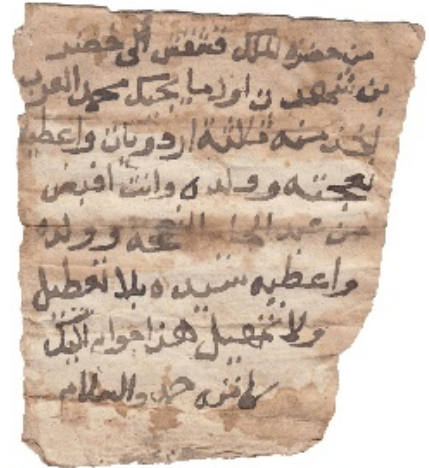 من حضرة الملك قشقش الى خضر
بن شهدت اول ما يجيك محمد العرب
تاخذ منه ثلثة اردويات واعطيه
نعجته وولده وانت اقبض
من عبد النعجة وولده
واعطيه سيده بلا تعطيل
ولا تمهيل هذا جوابي اليك
كاتبه حمد والسلام